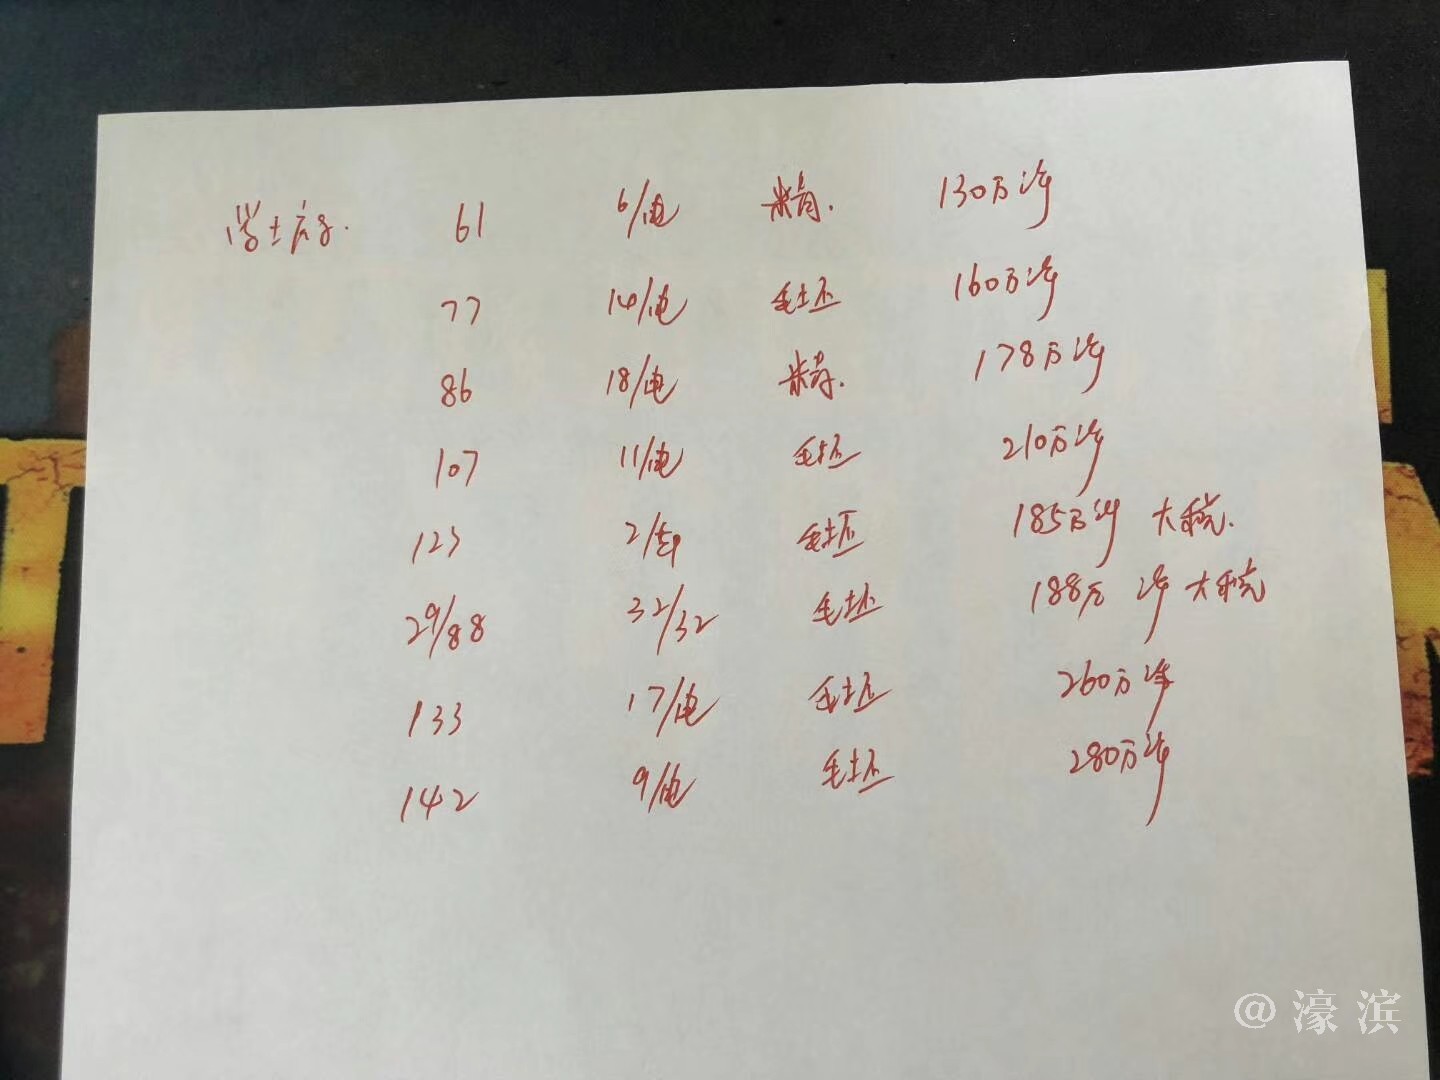 学士府. 61 6/电 精. 130万净
77 14/电 毛坯 160万净
86 18/电 精. 178万净
107 11/电 毛坯 210万净
123 2/ 毛坯 185万净 大税.
29/88 32/32 毛坯 188万 净 大税
133 17/电 毛坯 260万净
142 9/电 毛坯 280万净
@濠滨